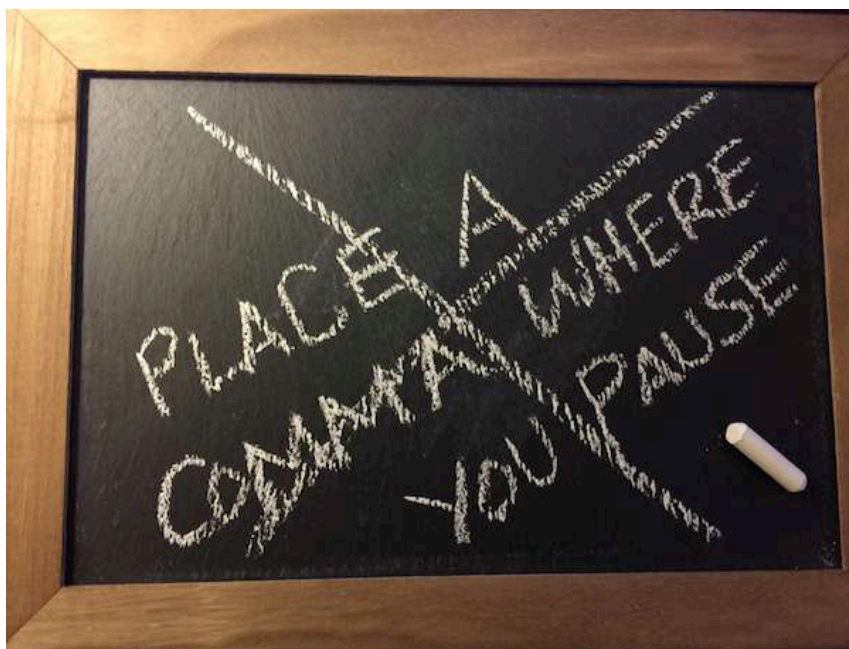 PLACE A
COMMA WHERE
YOU PAUSE